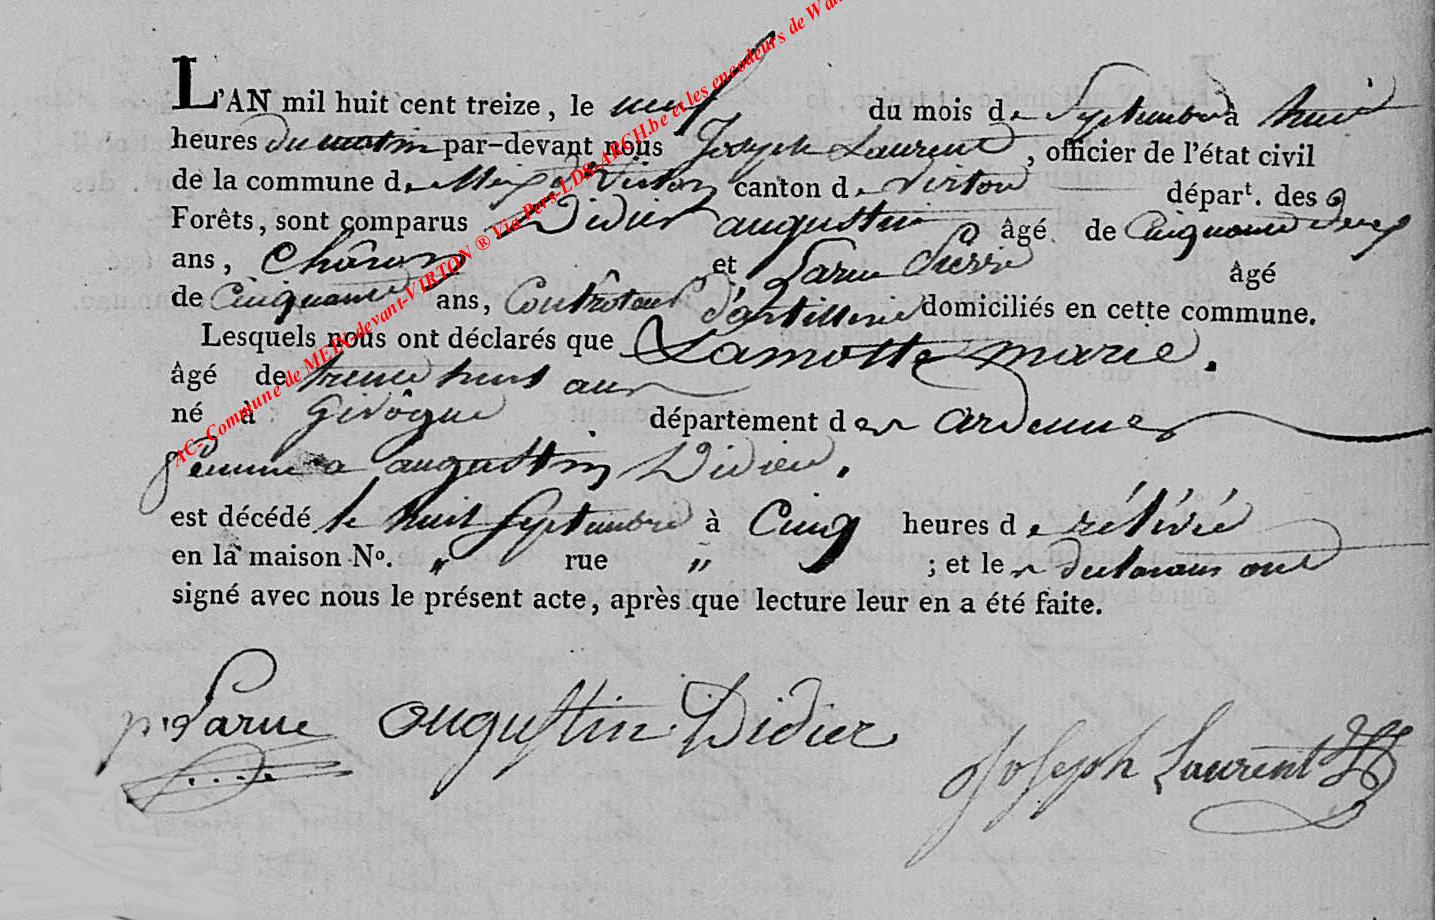 L'AN mil huit cent treize, le neuf du mois de Septembre à huit
heures du matin par-devant nous Joseph Laurent, officier de l'état civil
de la commune de Meix dt Virton canton de Virton départ. des
Forêts, sont comparus Didier augustin âgé de Cinquante deux
ans, et Larue Pierre âgé
de Cinquante ans, Controteur d'artillerie domiciliés en cette commune.
Lesquels nous ont déclarés que Lamotte marie.
âgé de trente huit ans
né à Givôgne département des ardennes
femme a augustin Didier.
est décédé le huit Septembre à Cinq heures de rélévé
en la maison No. „ rue „ ; et les declarans ont
signé avec nous le présent acte, après que lecture leur en a été faite.
p. Larue augustin Didier Joseph Laurent
AC- Commune de MEIX-devant-VIRTON ® Via Pers-LDS-ARCH.be et les encodeurs de